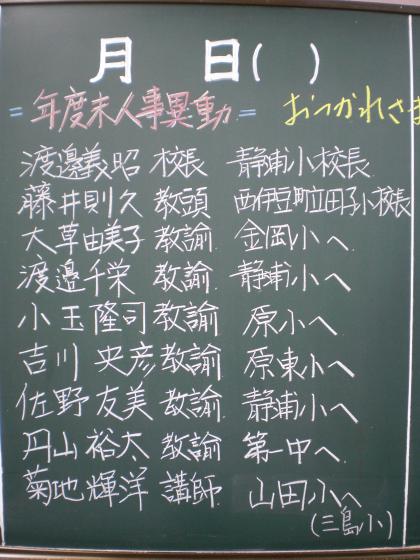 月 日( )
=年度末人事異動= おつかれさま
渡邊義昭 校長 静浦小校長
藤井則久 教頭 西伊豆町立田子小校長
大草由美子 教諭 金岡小へ
渡邊千栄 教諭 静浦小へ
小玉隆司 教諭 原小へ
吉川央彦 教諭 原東小へ
佐野友美 教諭 静浦小へ
円山裕太 教諭 第一中へ
菊地輝洋 講師 山田小へ
(三島小)